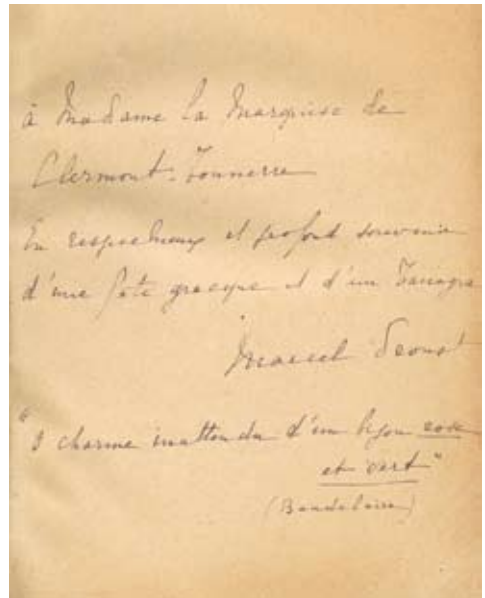 à Madame la Marquise de
Clermont-Tonnerre
En respectueux et profond souvenir
d'une fête grecque et d'un Tanagra
Marcel Proust
"O charme inattendu d'un bijou rose
et vert"
(Baudelaire)